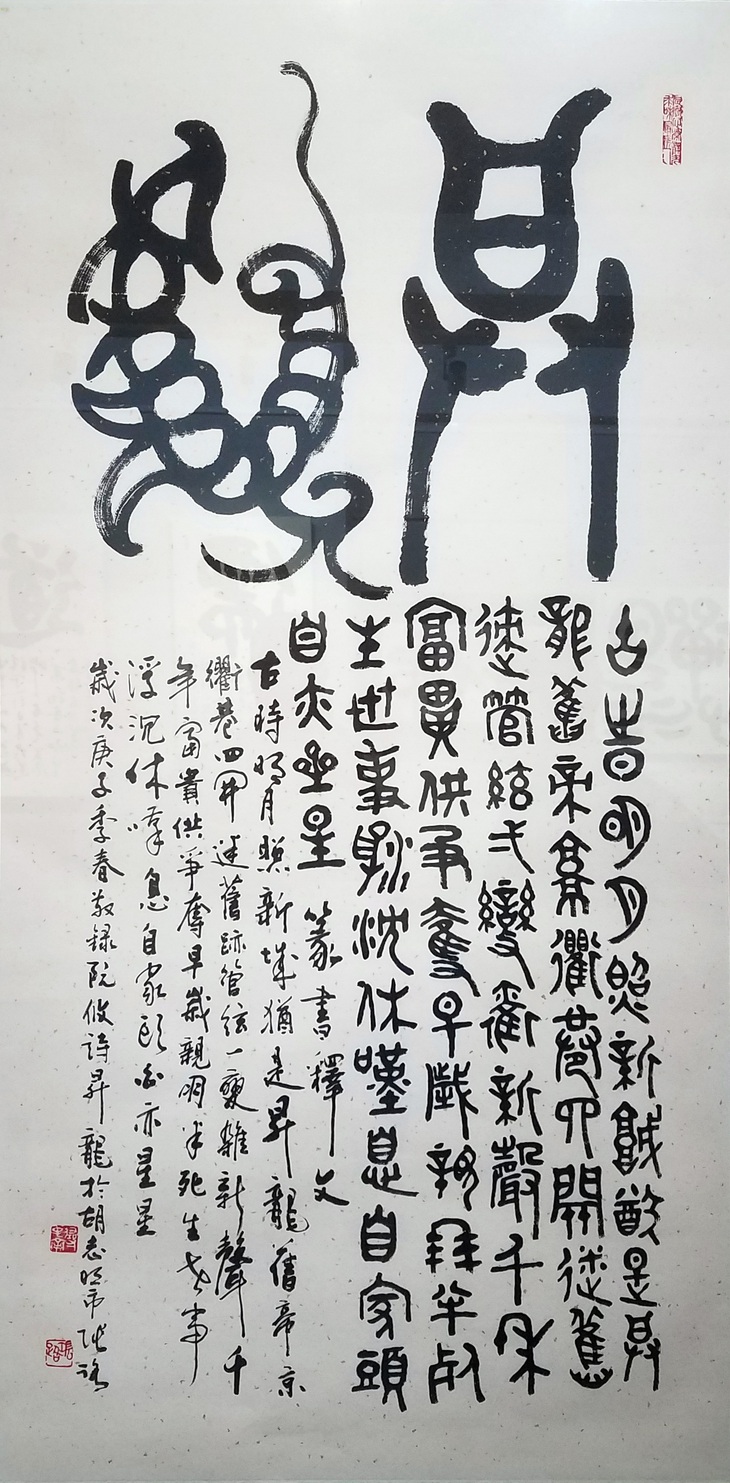 昇龍
古旹明月照新城猶是昇
龍舊帝京衢巷四開迷舊
跡管絃弌變雜新聲千年
富貴供爭奪早歲親朋半死
生世事浮沈休嘆息自家頭
白亦星星 篆書釋文
古時明月照新城猶是昇龍舊帝京
衢巷四開迷舊跡管絃一變雜新聲千
年富貴供爭奪早歲親朋半死生世事
浮沉休嘆息自家頭白亦星星
歲次庚子季春敬錄阮攸詩昇龍於胡志明市張路